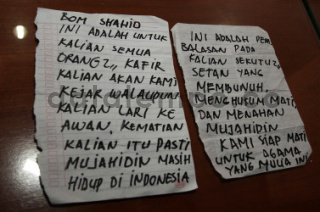 BOM SHAHID
INI ADALAH UNTUK
KALIAN SEMUA
ORANG2,, KAFIR
KALIAN AKAN KAMI
KEJAR WALAUPUN
KALIAN LARI KE
AWAN. KEMATIAN
KALIAN ITU PASTI
MUJAHIDIN MASIH
HIDUP DI INDONESIA
INI ADALAH PEM
BALASAN PADA
KALIAN SEKUTU2,,
SETAN YANG
MEMBUNUH.
MENGHUKUM MATI
DAN MENAHAN
MUJAHIDIN
KAMI SIAP MATI
UNTUK AGAMA
YANG MULIA INI.